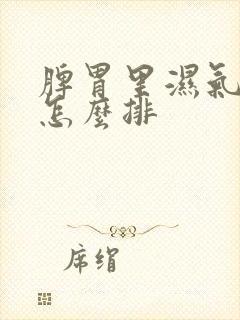 脾胃里濕氣
怎麽排
席绢